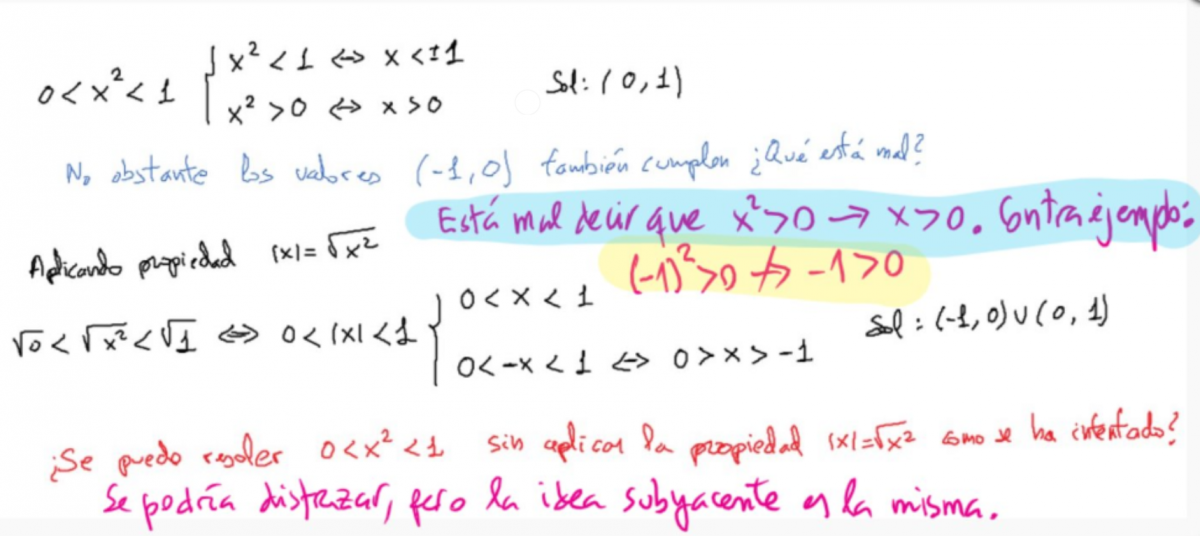 0 < x² < 1 { x² < 1 ⇔ x < ±1
x² > 0 ⇔ x > 0
Sol: (0, 1)
No obstante los valores (-1, 0) también cumplen ¿Qué está mal?
Está mal decir que x² > 0 → x > 0. Contraejemplo:
(-1)² > 0 ⇏ -1 > 0
Aplicando propiedad |x| = √x²
√0 < √x² < √1 ⇔ 0 < |x| < 1 { 0 < x < 1
0 < -x < 1 ⇔ 0 > x > -1
Sol: (-1, 0) ∪ (0, 1)
¿Se puede resolver 0 < x² < 1 sin aplicar la propiedad |x| = √x² como se ha intentado?
Se podría disfrazar, pero la idea subyacente es la misma.